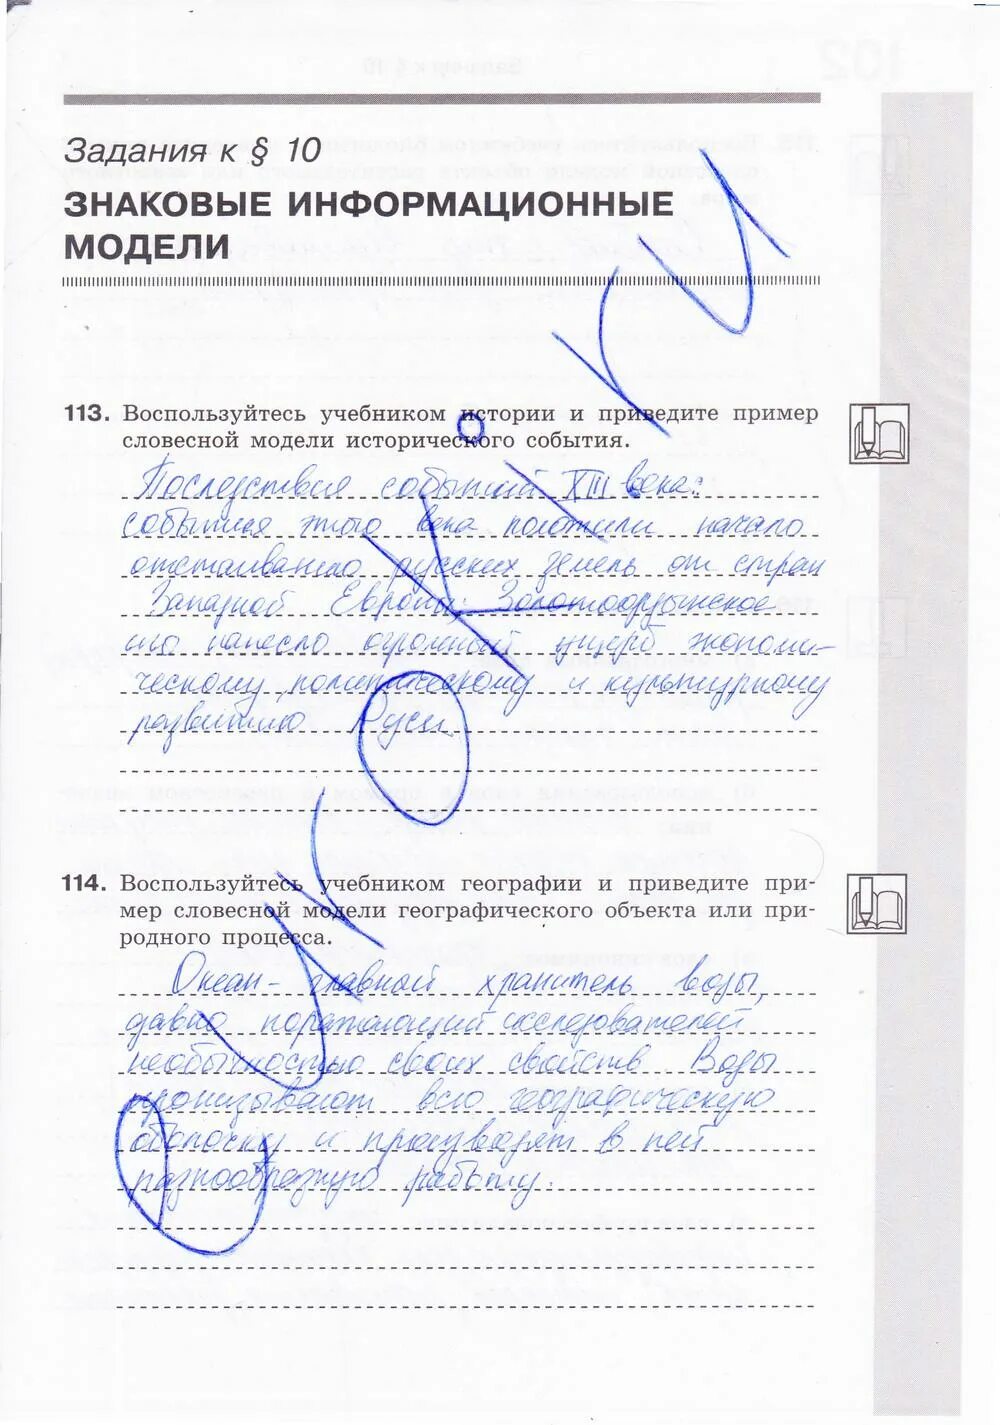 Задания к § 10
ЗНАКОВЫЕ ИНФОРМАЦИОННЫЕ
МОДЕЛИ
113. Воспользуйтесь учебником истории и приведите пример
словесной модели исторического события.
Последствия событий XIII века:
события этого века положили начало
отстаиванию русских земель от стран
Западной Европы; Золотоордынское
иго нанесло огромный ущерб экономи-
ческому, политическому и культурному
развитию Руси.
114. Воспользуйтесь учебником географии и приведите при-
мер словесной модели географического объекта или при-
родного процесса.
Океан - главный хранитель воды,
давно поражающий исследователей
необычностью своих свойств. Воды
пронизывают всю географическую
оболочку и производят в ней
разнообразную работу.